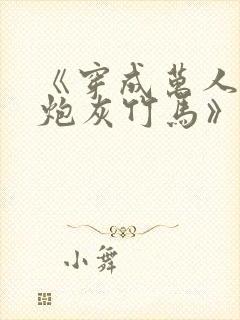 《穿成萬人
炮灰竹馬》
小舞